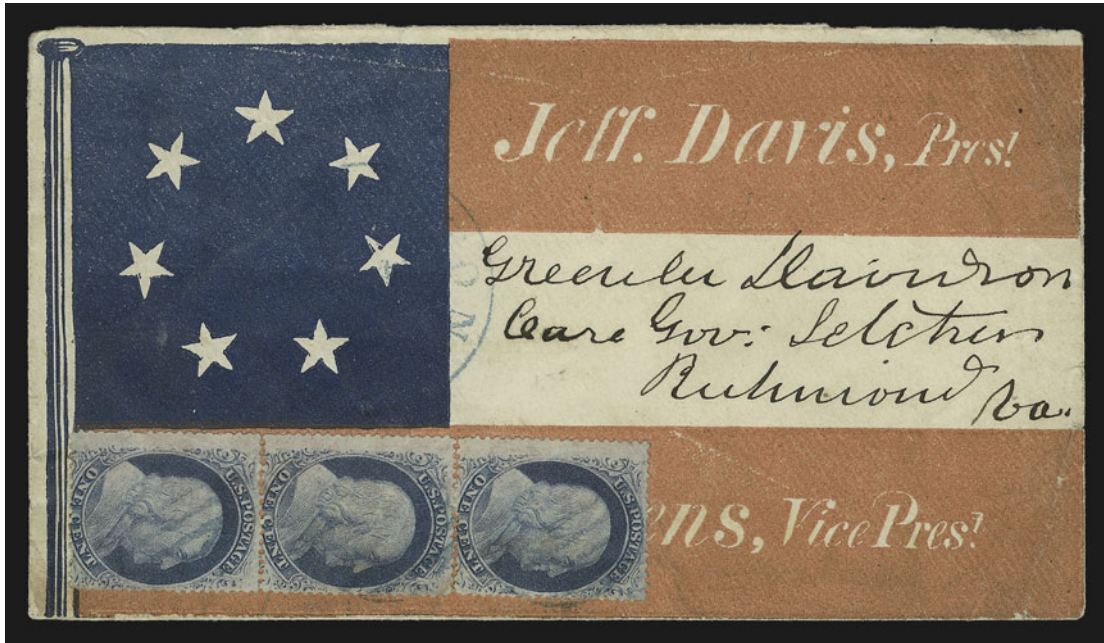 Jeff. Davis, Pres!
Greenlee Davidson
Care Gov: Letcher
Richmond Va.
ens, Vice Pres!
U.S. POSTAGE
ONE CENT
U.S. POSTAGE
ONE CENT
U.S. POSTAGE
ONE CENT